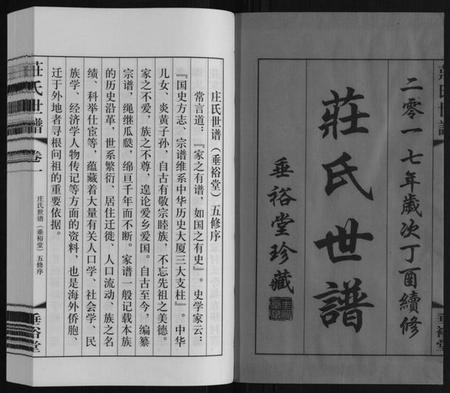 莊氏世譜
二零一七年歲次丁酉續修
莊氏世譜
垂裕堂珍藏
垂裕堂
庄氏世譜（垂裕堂）五修序
常言道：『家之有谱，如国之有史』。史学家云：
『国史方志、宗谱维系中华历史大厦三大支柱』。中华
儿女、炎黄子孙，自古有敬宗睦族，不忘先祖之美德。
家之不爱，族之不尊，遑论爱乡爱国。自古至今，编纂
宗谱，绳继瓜瓞，绵亘千年而不断。家谱一般记载本族
的历史沿革，世系繁衍、居住迁徙、人口流动、族之名
绩、科举仕宦等，蕴藏着大量有关人口学、社会学、民
族学、经济学人物传记等方面的资料，也是海外侨胞、
迁于外地者寻根问祖的重要依据。
莊氏世譜
卷一
庄氏世譜（垂裕堂）五修序
垂裕堂